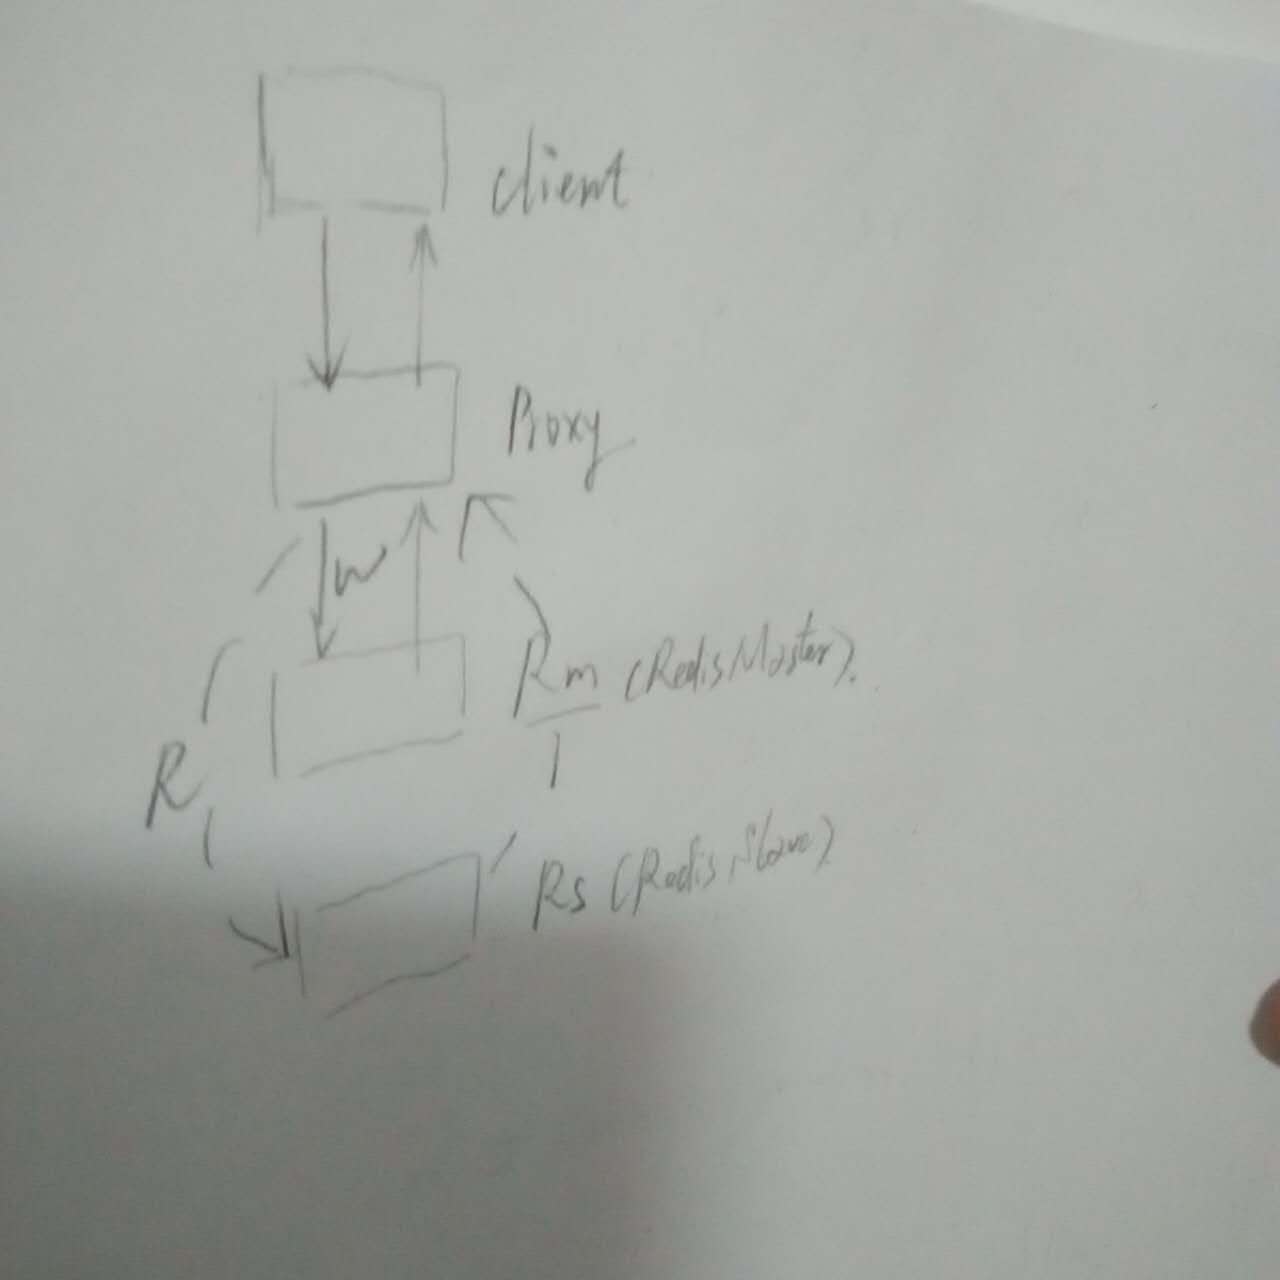 client
Proxy
W
Rm (Redis Master).
R
Rs (Redis Slave)